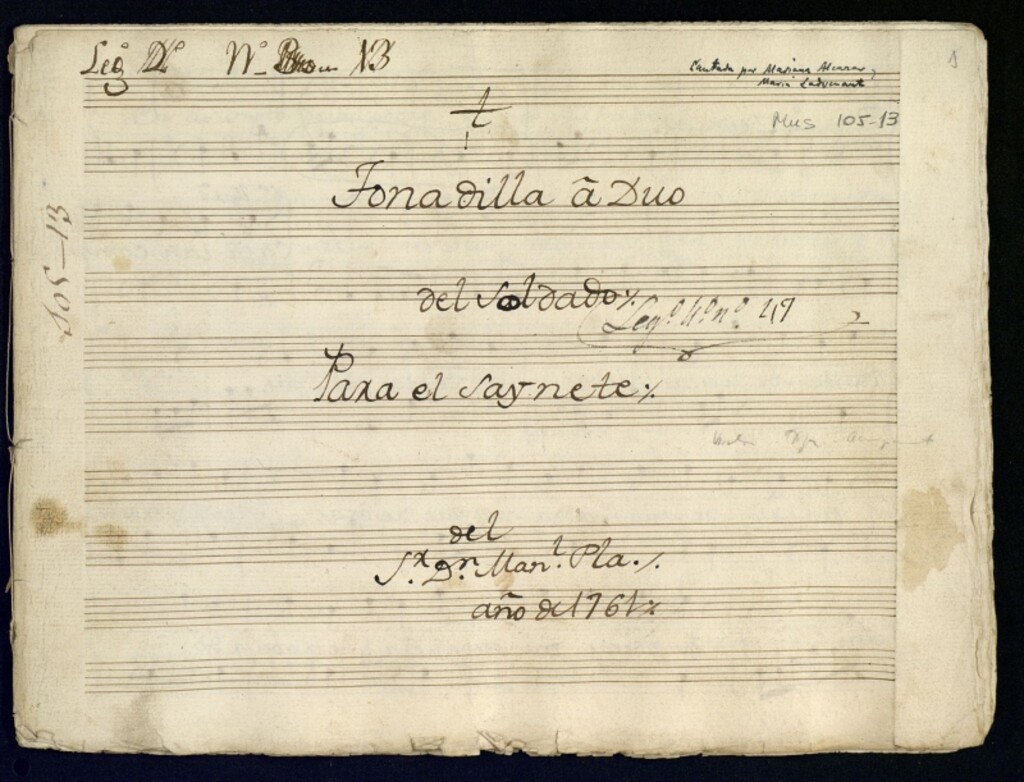 Leg.º Nº 13
Cantada por Mariana Alcazar y
Maria Ladvenant
1
Mus 105-13
Tonadilla â Duo
del Soldado
Leg.º 4º nº 49
Para el Saynete
del
S.r D.n Man.l Pla.
año de 1761
105-13